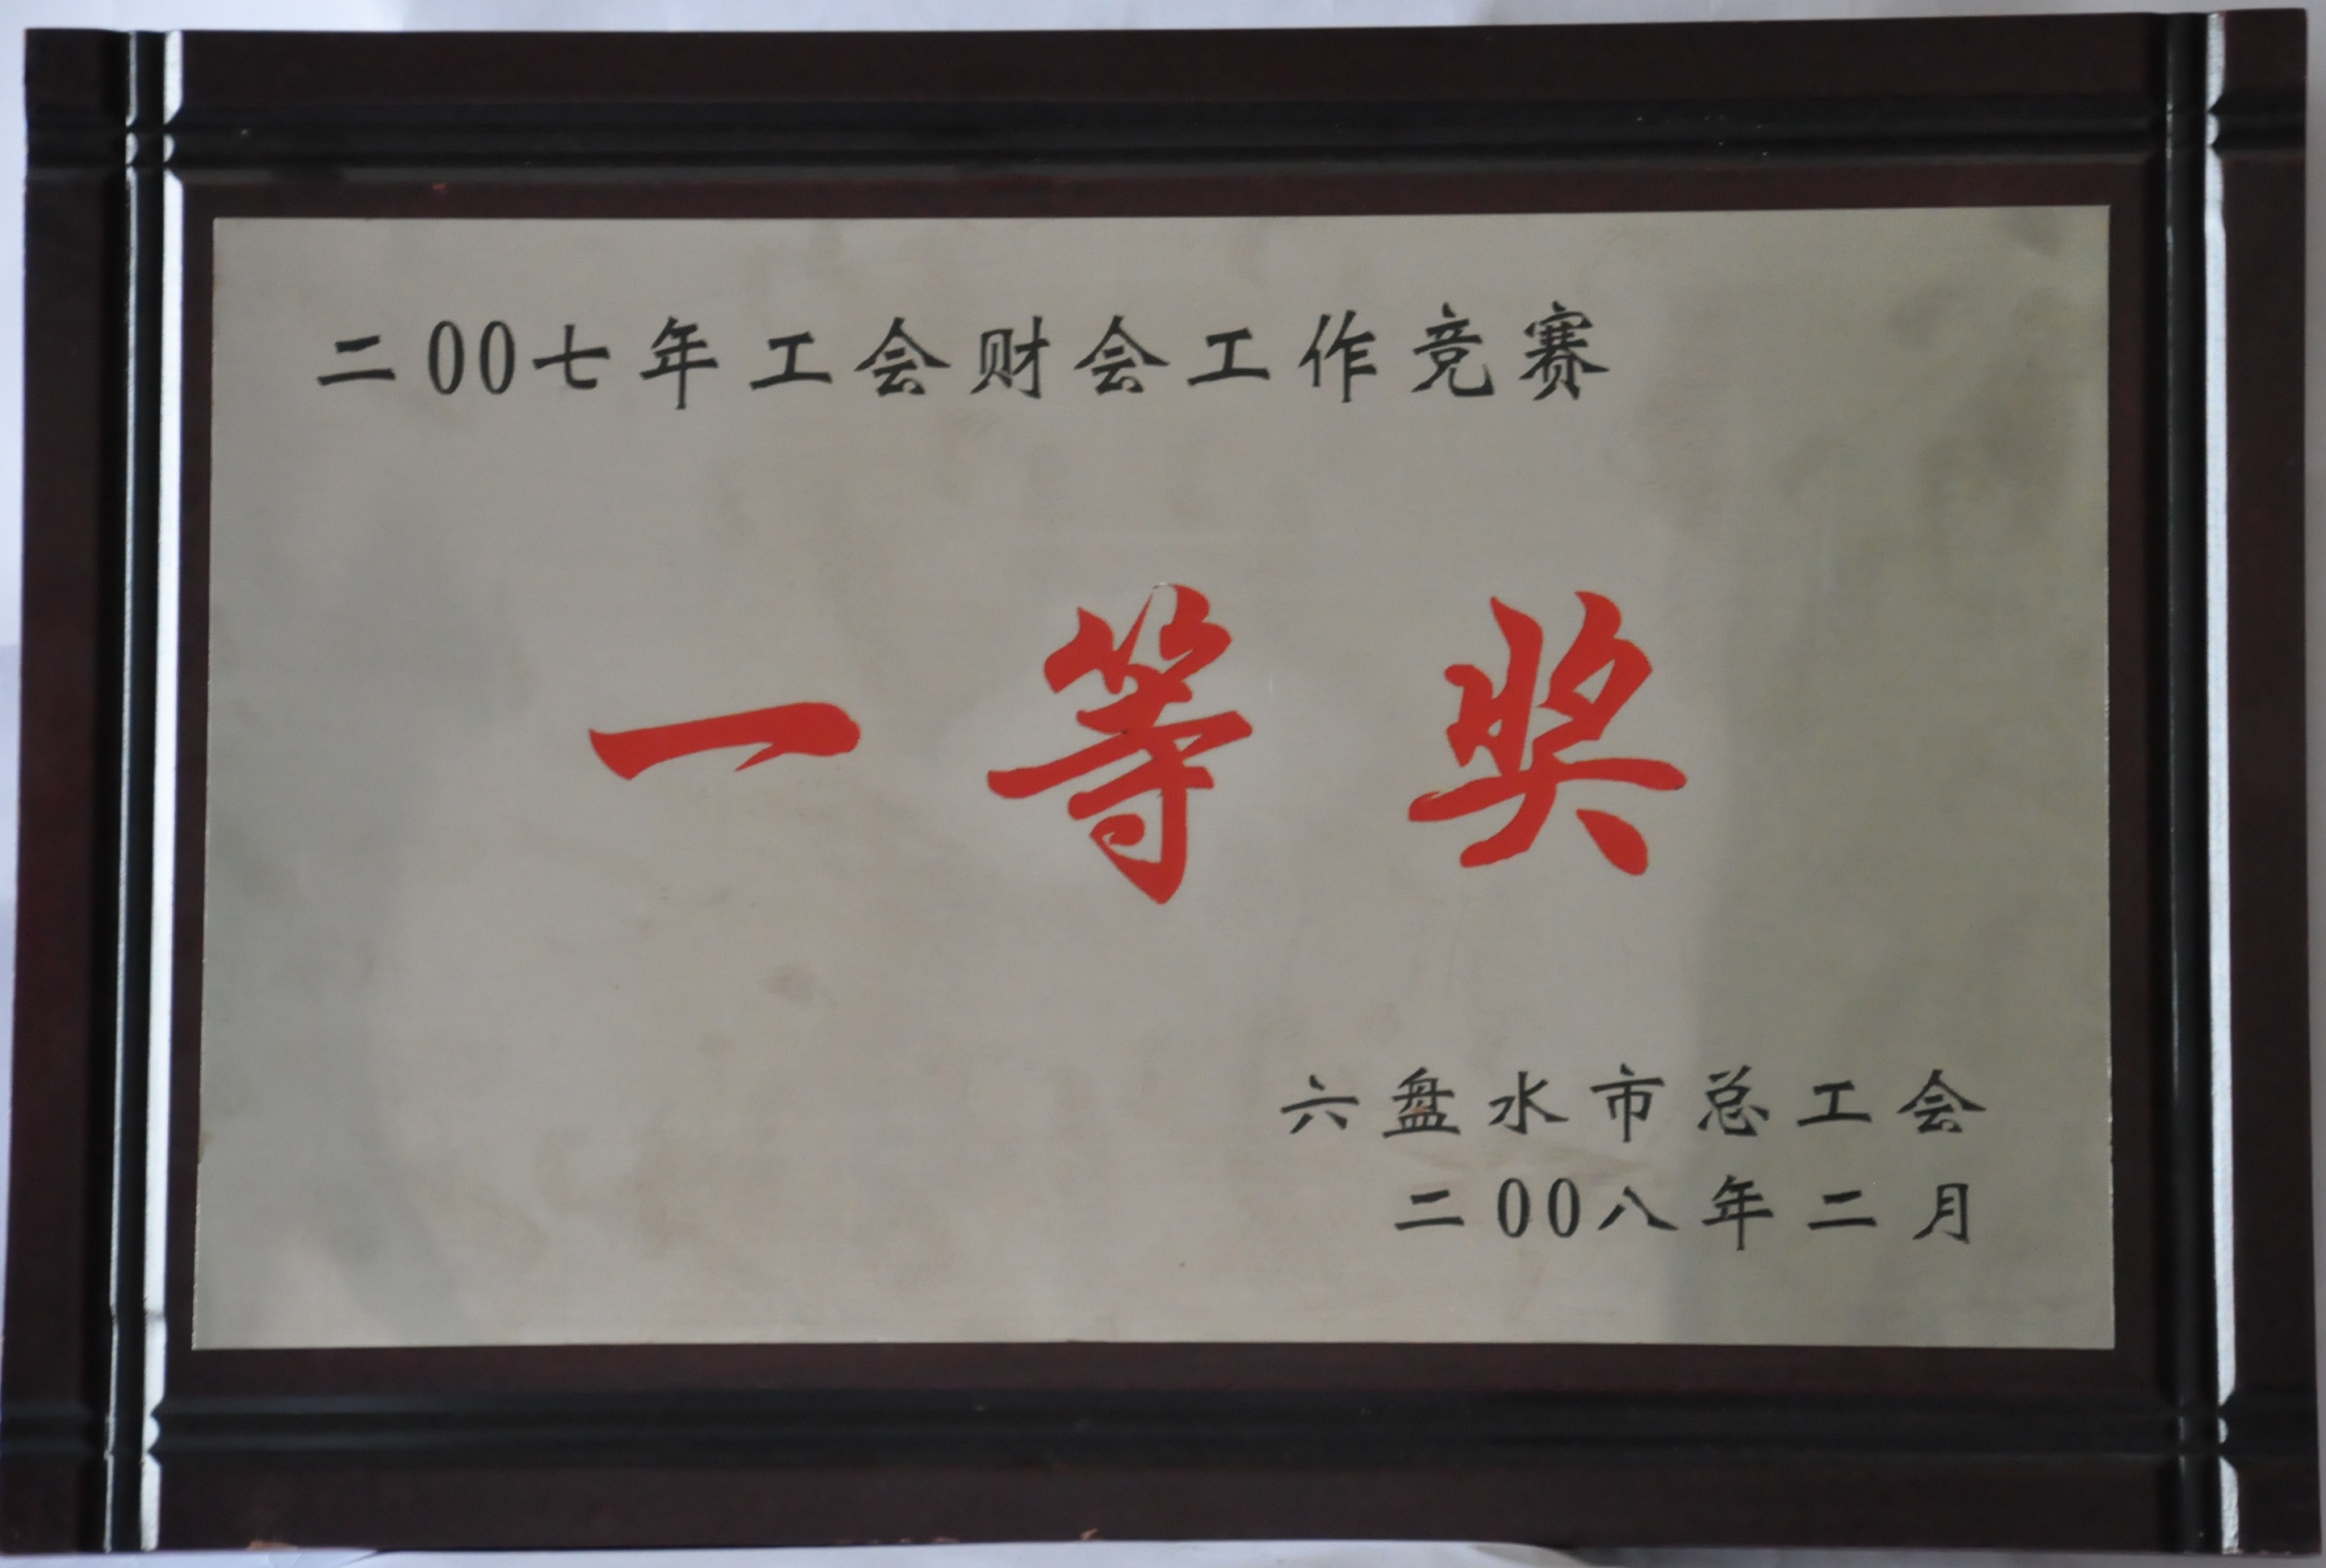 二00七年工会财会工作竞赛
一等奖
六盘水市总工会
二00八年二月